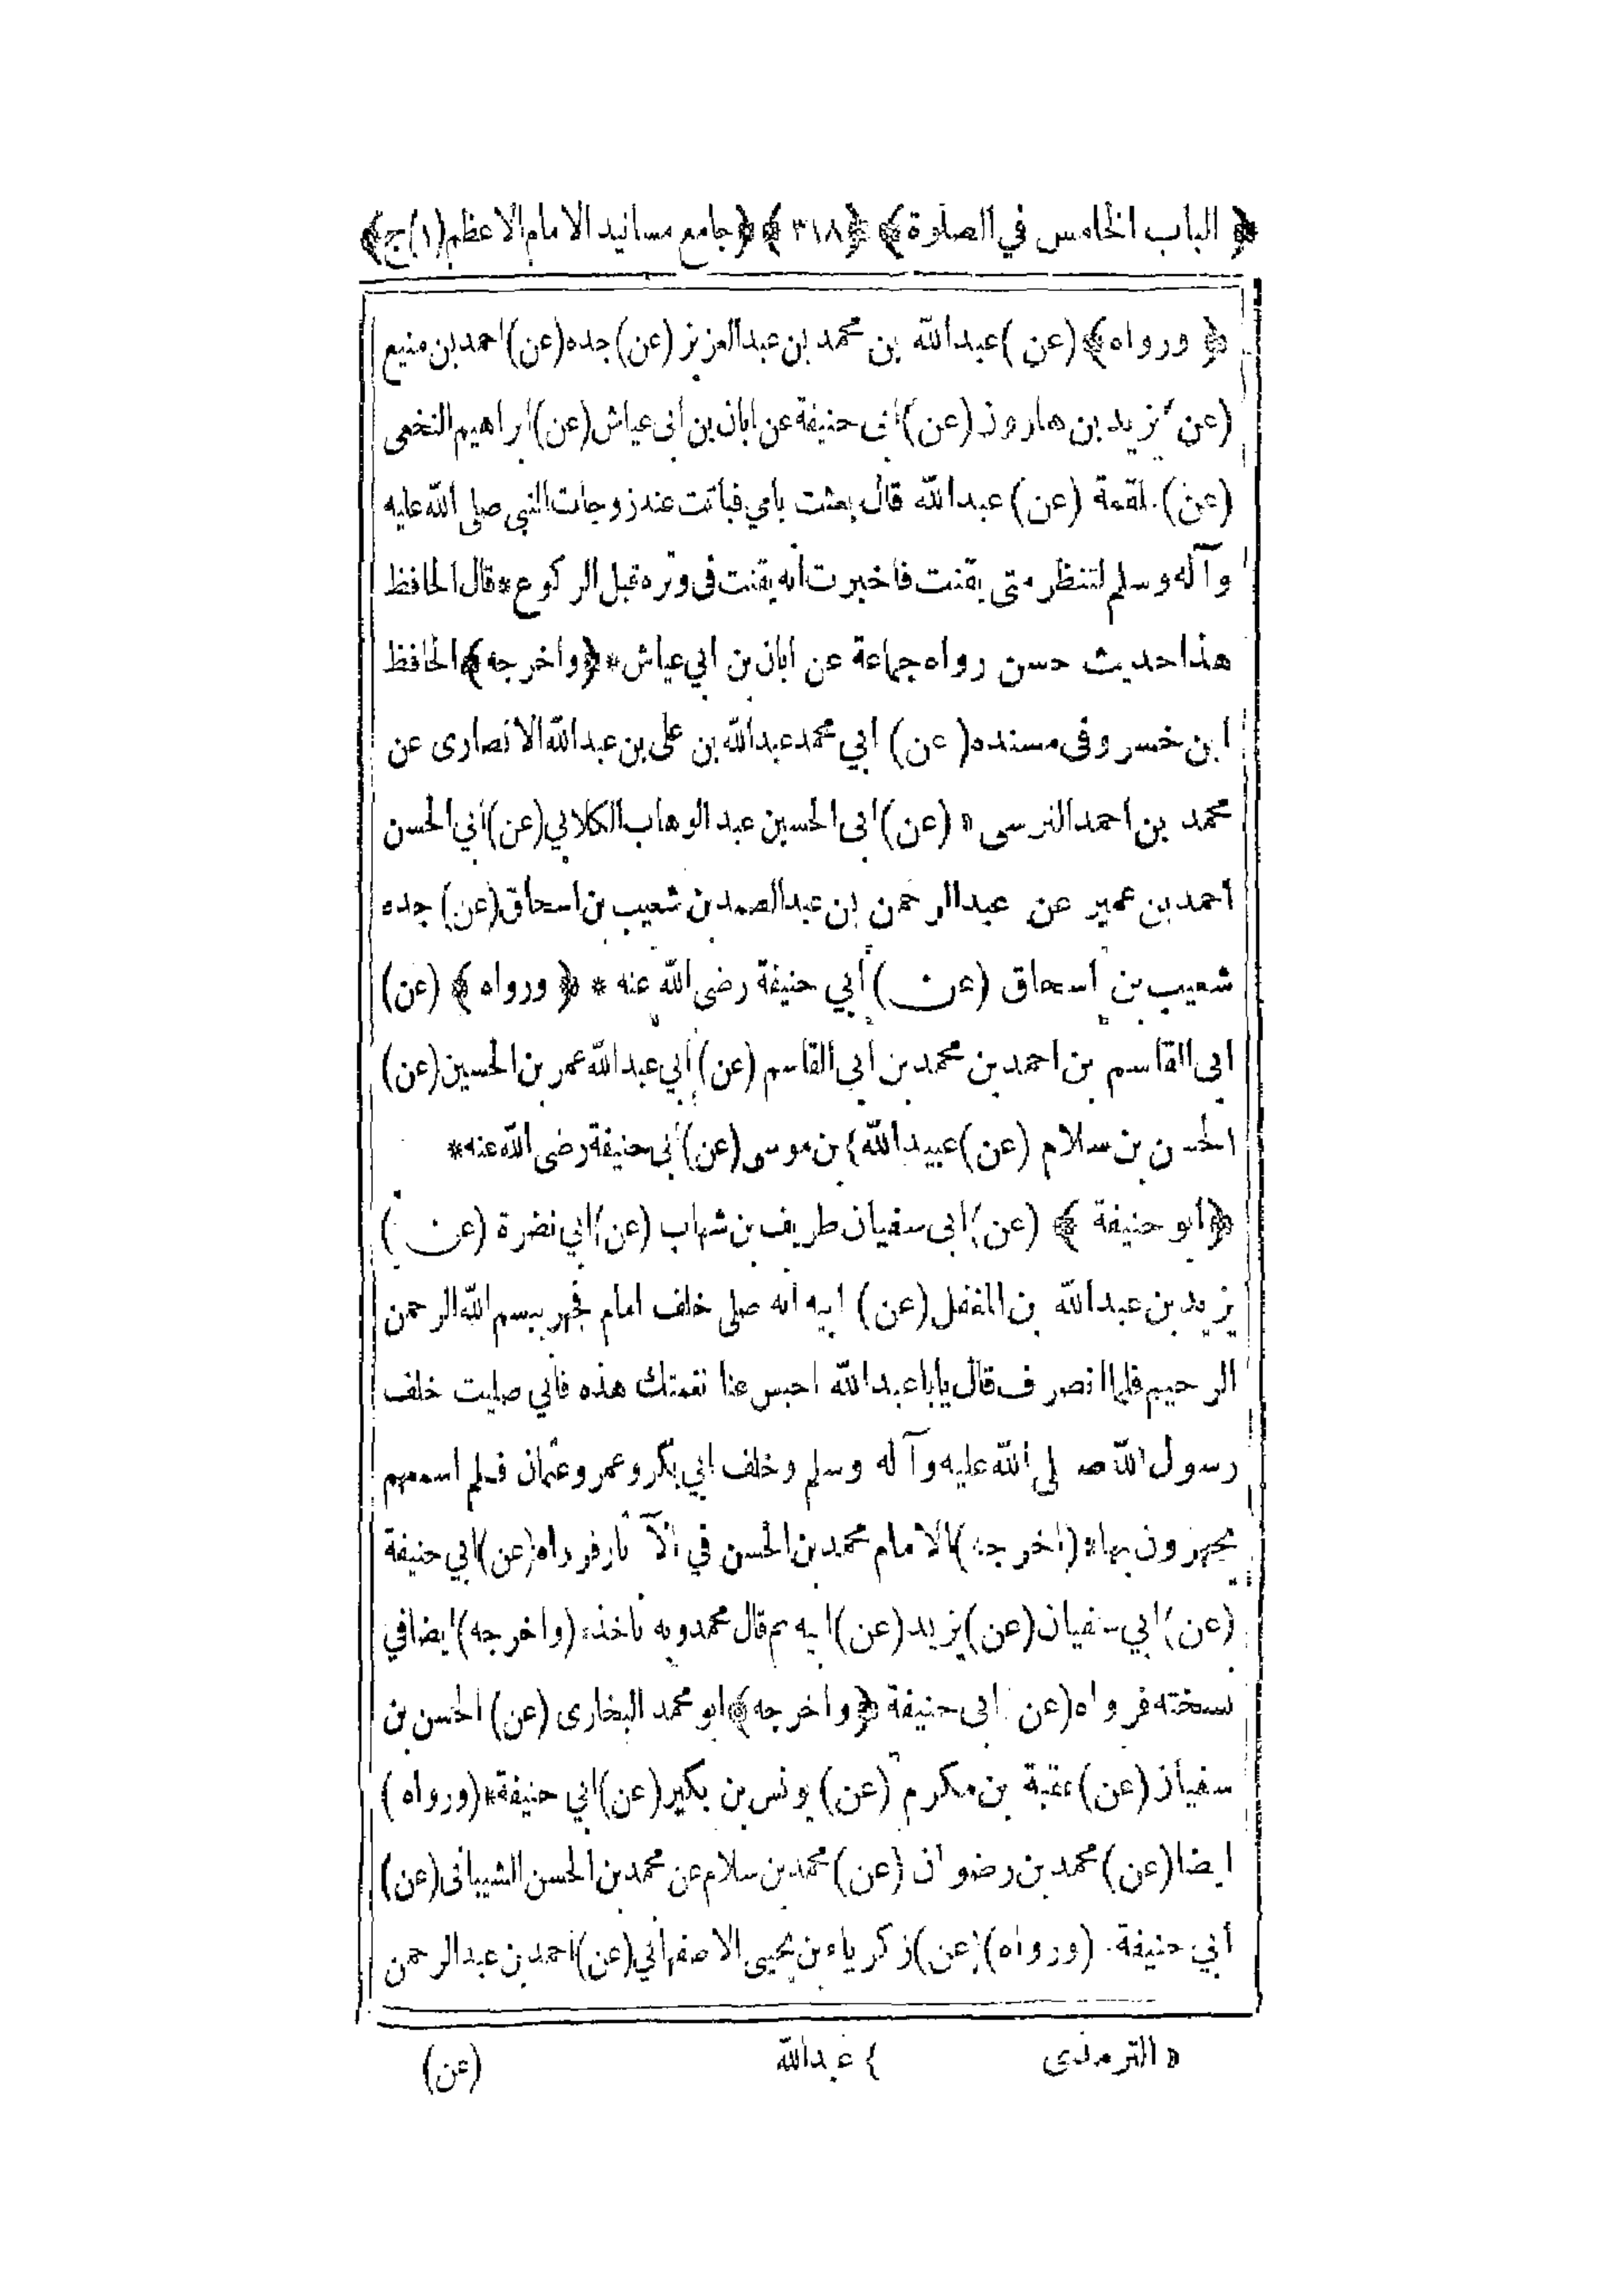 ﴿ الباب الخامس في الصلوة ﴾ ﴿٣١٨﴾ ﴿جامع مسانيد الامام الاعظم (١) ج﴾
﴿ ورواه﴾ (عن) عبدالله بن محمد بن عبدالعزيز (عن) جده (عن) احمد بن منيع
(عن) يزيد بن هارون (عن) ابي حنيفة عن ابان بن ابي عياش (عن) ابراهيم النخعي
(عن) علقمة (عن) عبدالله قال بعثت بامي فباتت عند زوجات النبي صلى الله عليه
وآله وسلم لتنظر متى يقنت فاخبرت انه يقنت في وتره قبل الركوع * قال الحافظ
هذا حديث حسن رواه جماعة عن ابان بن ابي عياش * ﴿واخرجه﴾ الحافظ
ابن خسرو في مسنده (عن) ابي محمد عبدالله بن علي بن عبدالله الانصارى عن
محمد بن احمد النرسى « (عن) ابى الحسين عبد الوهاب الكلابي (عن) ابي الحسن
احمد بن عمير عن عبدالرحمن بن عبدالصمد بن شعيب بن اسحاق (عن) جده
شعيب بن اسحاق (عن) أبي حنيفة رضى الله عنه * ﴿ ورواه ﴾ (عن)
ابى القاسم بن احمد بن محمد بن ابي القاسم (عن) أبي عبدالله عمر بن الحسين (عن)
الحسن بن سلام (عن) عبيدالله } بن موسى (عن) أبي حنيفة رضى الله عنه *
﴿ابو حنيفة ﴾ (عن) ابى سفيان طريف بن شهاب (عن) ابي نضرة (عن)
يزيد بن عبدالله بن المغفل (عن) ابيه انه صلى خلف امام فجهر ببسم الله الرحمن
الرحيم فلما انصرف قال يابا عبدالله احبس عنا نغمتك هذه فاني صليت خلف
رسول الله صلى الله عليه وآله وسلم وخلف ابي بكر وعمر وعثمان فلم اسمعهم
يجهرون بها * (اخرجه) الامام محمد بن الحسن في الآثار فرواه (عن) ابي حنيفة
(عن) ابي سفيان (عن) يزيد (عن) ابيه ثم قال محمد وبه ناخذ * (واخرجه) ايضا في
نسخته فرواه (عن) ابى حنيفة ﴿واخرجه﴾ ابو محمد البخارى (عن) الحسن بن
سفيان (عن) عقبة بن مكرم (عن) يونس بن بكير (عن) ابي حنيفة * (ورواه)
ايضا (عن) محمد بن رضوان (عن) محمد بن سلام عن محمد بن الحسن الشيبانى (عن)
ابي حنيفة * (ورواه) (عن) زكرياء بن يحيى الاصفهاني (عن) احمد بن عبدالرحمن
« الترمذى } عبدالله (عن)